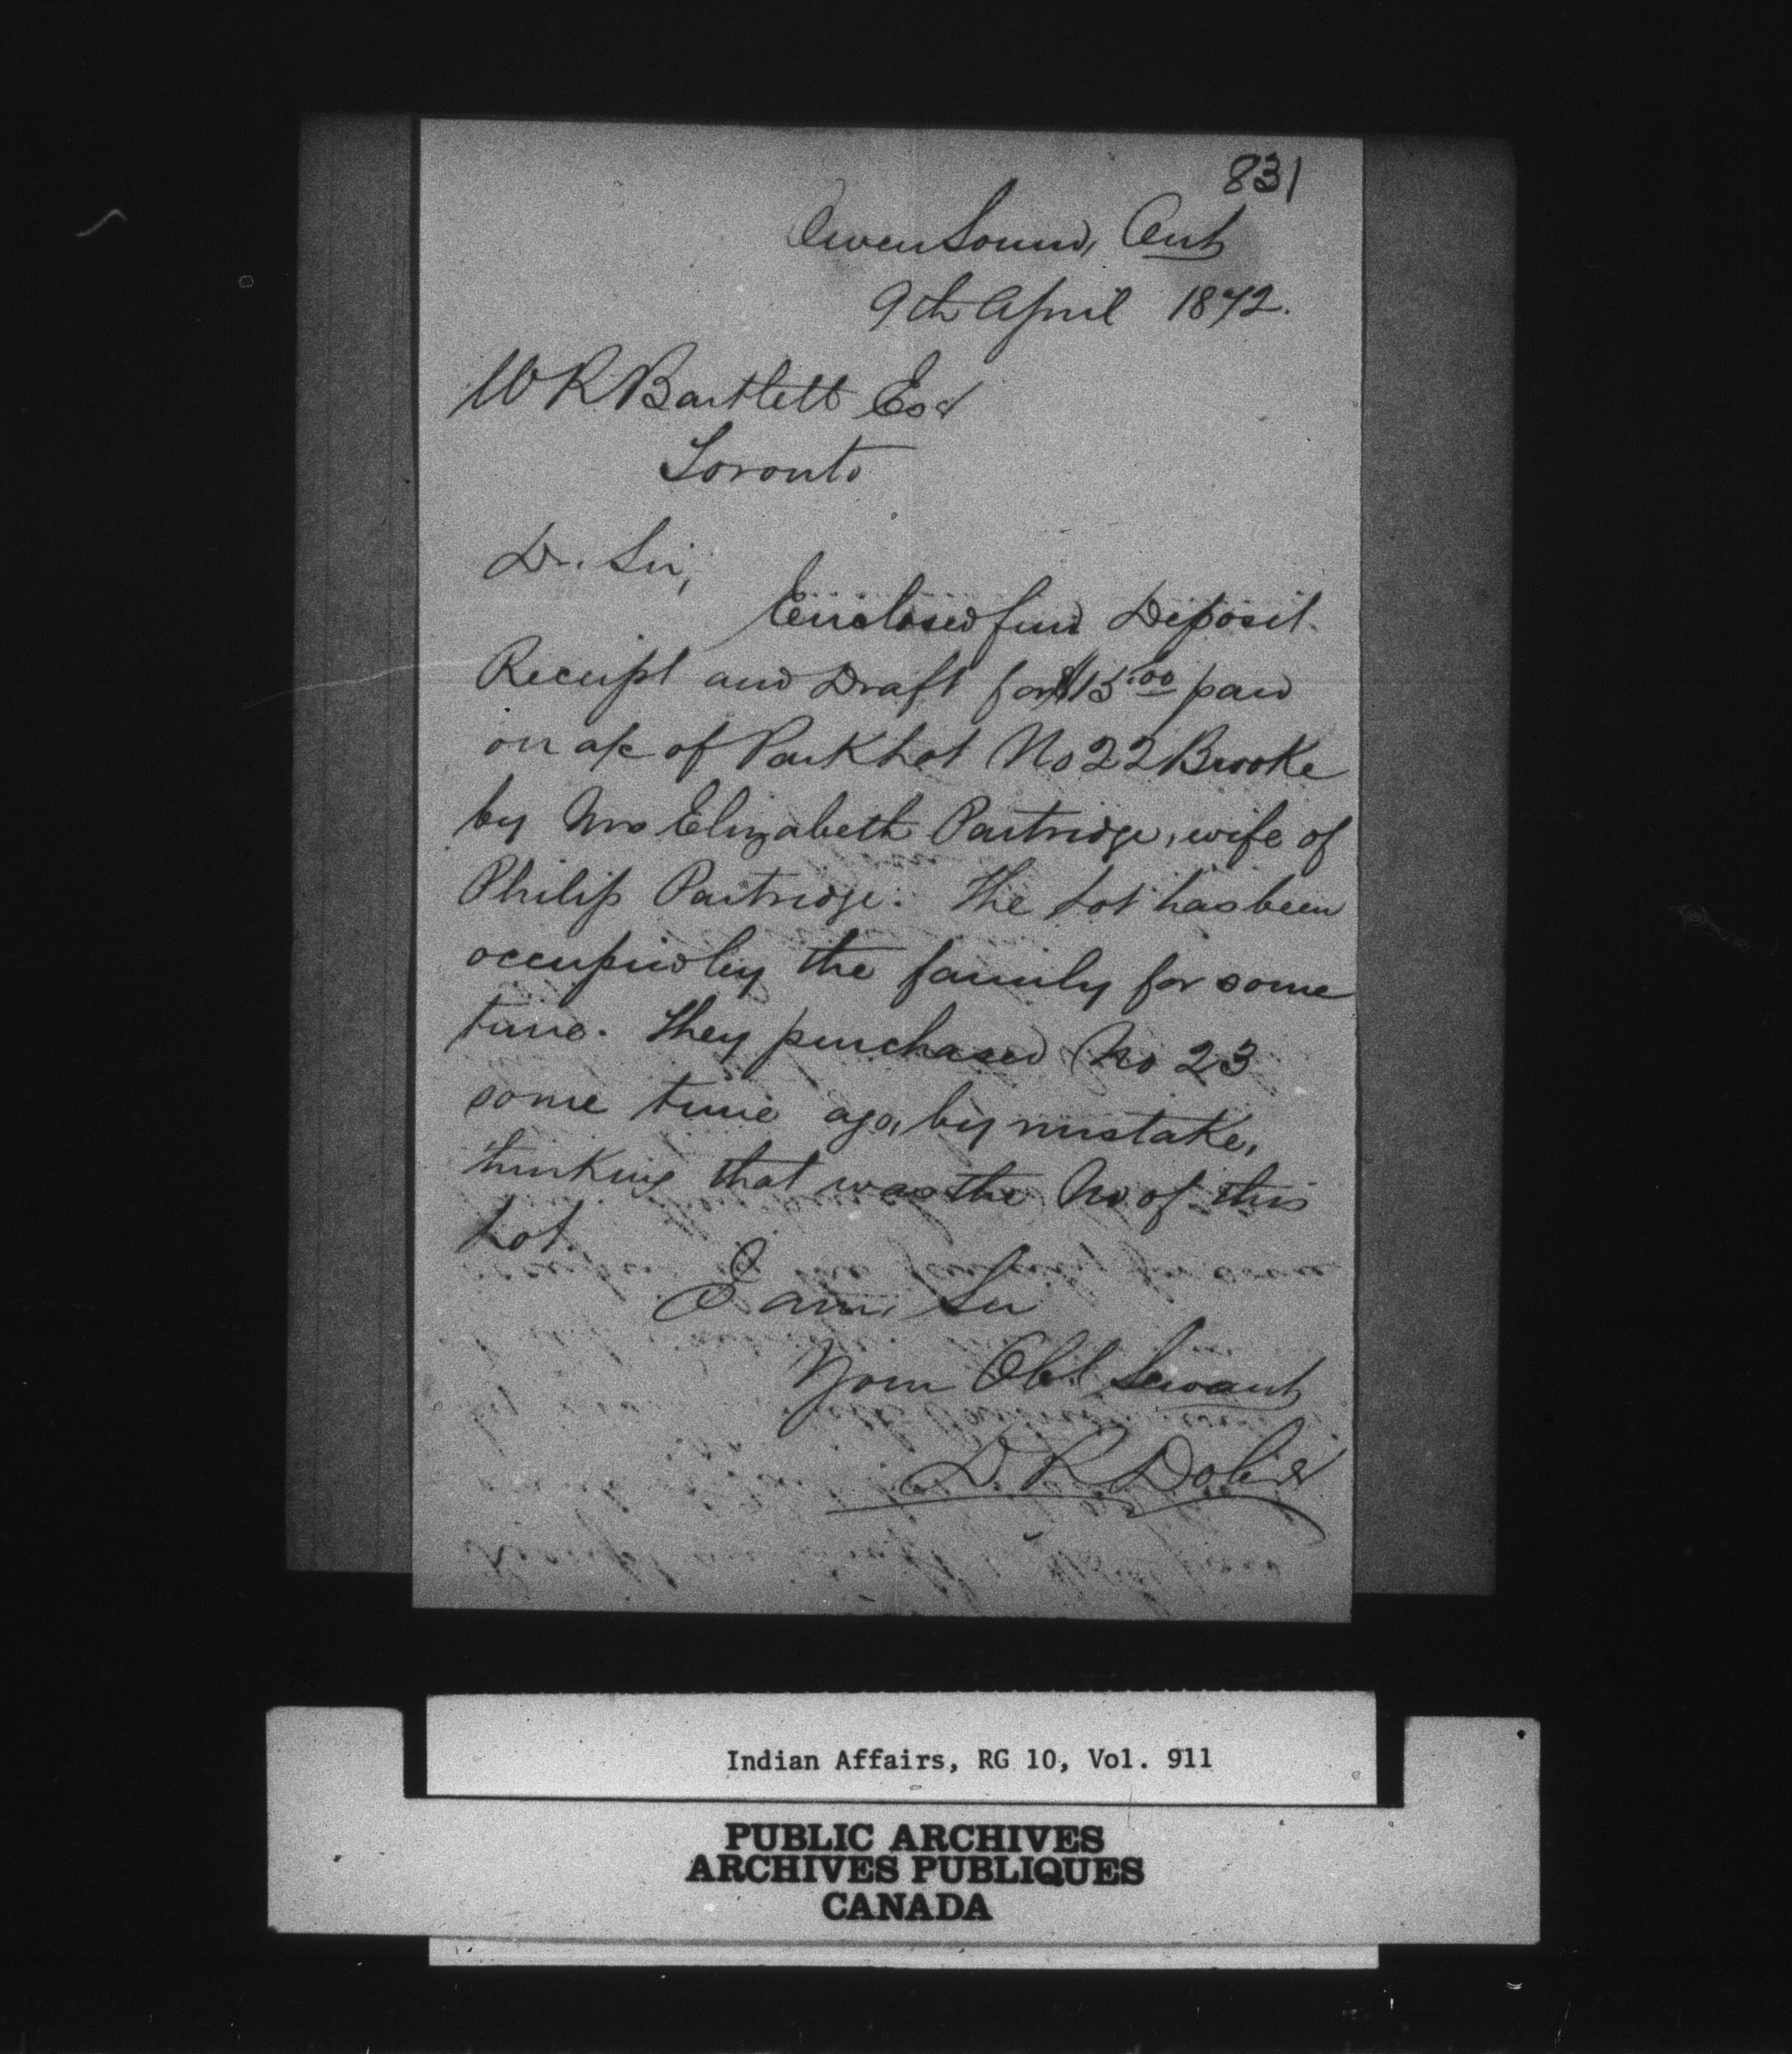 831
Owen Sound, Ont
9th April 1872.
W R Bartlett Esq
Toronto
Dr. Sir,
Enclosed find Deposit
Receipt and Draft for $15.00 paid
on a/c of Park Lot No 22 Brooke
by Mrs Elizabeth Partridge, wife of
Philip Partridge. The Lot has been
occupied by the family for some
time. They purchased No 23
some time ago, by mistake,
thinking that was the No of this
Lot.
I am, Sir
Your Obt Servant
D. R. Dobie
Indian Affairs, RG 10, Vol. 911
PUBLIC ARCHIVES
ARCHIVES PUBLIQUES
CANADA